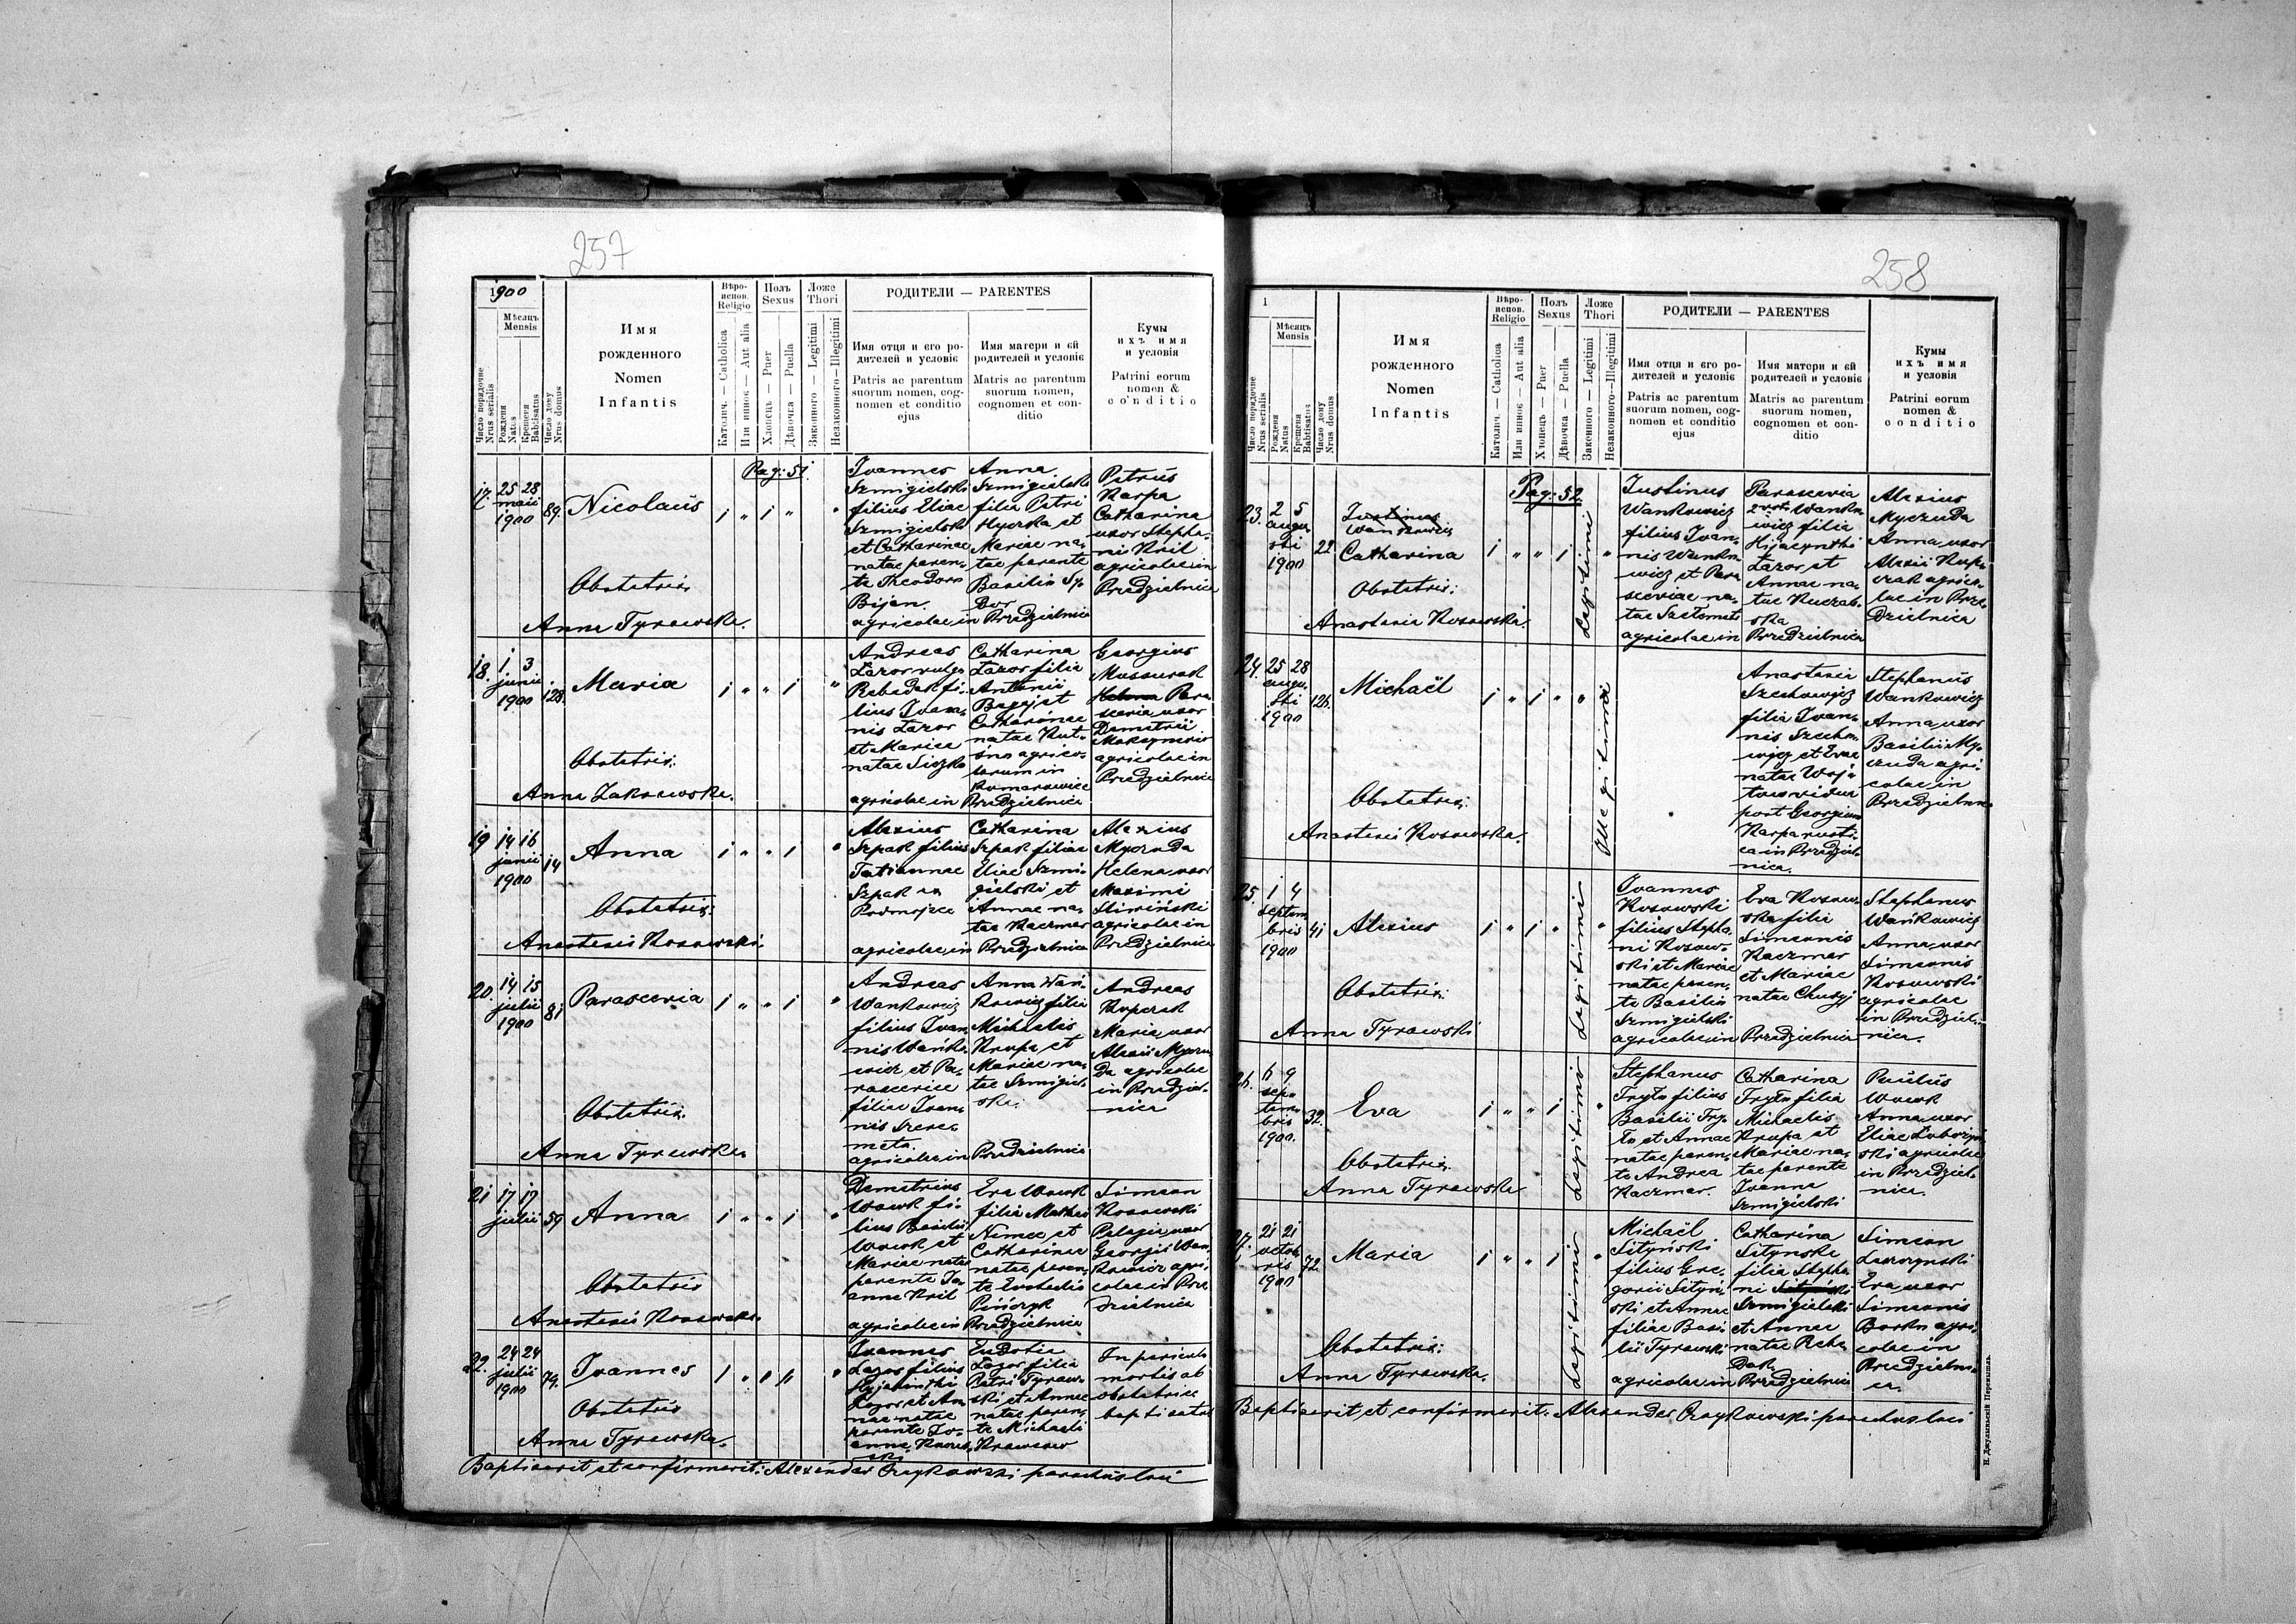 257
1900
Мѣсяцъ
Mensis
Число порядочне
Nrus serialis
Рожденя
Natus
Крещеня
Babtisatus
Число дому
Nrus domus
Имя
рожденного
Nomen
Infantis
Вѣро-
испов.
Religio
Католич. — Catholica
Или иннок — Aut alia
Полъ
Sexus
Хлопець — Puer
Дѣвочка — Puella
Ложе
Thori
Законного — Legitimi
Незаконного — Illegitimi
РОДИТЕЛИ — PARENTES
Имя отця и єго ро-
дителей и условіє
Patris ac parentum
suorum nomen, cog-
nomen et conditio
ejus
Имя матери и єй
родителей и условіє
Matris ac parentum
suorum nomen,
cognomen et con-
ditio
Кумы
ихъ имя
и условія
Patrini eorum
nomen &
conditio
Pag: 51.
17. 25 28
maii
1900
89.
Nicolaus
Obstetrix
Anna Tyrawska.
Ivannes
Szmigielski
filius Eliae
Szmigielski
et Catharinae
natae paren-
te Theodoro
Bijan.
agricolae in
Anna
Szmigielski
filia Petri
Hycrka et
Mariae na-
tae parente
Basilio Sy-
dor
Przedzielnica
Petrus
Karpa
Catharina
uxor Stepha-
ni Kril
agricolae in
Przedzielnica
18. 1 3
junii
1900
128.
Maria
Obstetrix:
Anna Zakrzewska.
Andreas
Lazor vulgo
Rebedak fi-
lius Ivan-
nis Lazor
et Mariae
natae Siczko
agricolae in
Catharina
Lazor filia
Antonii
Bagaj et
Catharinae
natae Rut-
agrico-
larum in
Komarowice
Przedzielnica
Georgius
Mussurak
Para-
scevia uxor
Demetrii
Maksymciw
agricolae in
Przedzielnica
19 14 16
junii
1900
14
Anna
Obstetrix:
Anastasia Kosowski.
Alexius
Szpak filius
Tatiannae
Szpak ex
Podmojsce
agricolae in
Catharina
Szpak filia
Eliae Szmi-
gielski et
Annae na-
tae Kaczmar
Przedzielnica
Alexius
Myczuda
Helena uxor
Maximi
Sliwiński
agricolae in
Przedzielnica
20. 14 15
julii
1900
81
Parascevia
Obstetrix.
Anna Tyrawska
Andreas
Wankowicz
filius Ivan-
nis Wańko-
wicz et Pa-
rasceviae
filiae Ivan-
nis Szere-
meta.
agricolae in
Anna Wań-
kowicz filia
Michaelis
Krupa et
Mariae na-
tae Szmigiel-
ska.
Przedzielnica
Andreas
Kuperak
Maria uxor
Alexii Myczu-
da agricolae
in Przedziel-
nica
21 17 17
julii
59
Anna
Obstetrix
Anastasia Kosowska.
Demetrius
Wowk fi-
lius Basilii
Wowk et
Mariae natae
parente Jo-
anne Kril
agricolae in
Eva Wowk
filia Mathei
Niemec et
Catharinae
natae paren-
te Eustachio
Pińczyk
Przedzielnica
Simeon
Kosowski
Pelagia uxor
Georgii Wan-
kowicz agri-
colae in Prze-
dzielnica
22. 24 24
julii
1900
79.
Ivannes
Obstetrix
Anna Tyrawska.
Ivannes
Lazor filius
Hyacinthi
Lazor et An-
nae natae
parente Jo-
anne Kucza-
ski
Eudotia
Lazor filia
Petri Tyraw-
ski et Annae
natae paren-
te Michaeli
Krawczow
In periculo
mortis ab
obstetrice
baptisatus
Baptisavit et confirmavit: Alexander Czajkowski parochus loci
258
1
Мѣсяцъ
Mensis
Число порядочне
Nrus serialis
Рожденя
Natus
Крещеня
Babtisatus
Число дому
Nrus domus
Имя
рожденного
Nomen
Infantis
Вѣро-
испов.
Religio
Католич. — Catholica
Или иннок — Aut alia
Полъ
Sexus
Хлопець — Puer
Дѣвочка — Puella
Ложе
Thori
Законного — Legitimi
Незаконного — Illegitimi
РОДИТЕЛИ — PARENTES
Имя отця и єго ро-
дителей и условіє
Patris ac parentum
suorum nomen, cog-
nomen et conditio
ejus
Имя матери и єй
родителей и условіє
Matris ac parentum
suorum nomen,
cognomen et con-
ditio
Кумы
ихъ имя
и условія
Patrini eorum
nomen &
conditio
Pag: 52.
23. 2 5
augu-
sti
1900
22.
Justinus
Wankowicz
Catharina
Obstetrix:
Anastasia Kosowska.
Legitimi
Justinus
Wankowicz
filius Ivan-
nis Wanko-
wicz et Para-
sceviae na-
tae Szeremeta
agricolae in
Parascevia
2 voto Wanko-
wicz filia
Hijacynthi
Lazor et
Annae na-
tae Kuczab-
ska
Przedzielnica
Alexius
Myczuda
Anna uxor
Alexii Kupe-
rak agrico-
lae in Prze-
dzielnica
24. 25 28
augu-
sti
1900
126.
Michaël
Obstetrix:
Anastasia Kosowska.
Illegitimi
Anastasia
Szechowicz
filia Ivan-
nis Szecho-
wicz et Evae
natae Woj-
tow vidua
post Georgium
Karpa rusti-
ca in Przedziel-
nica.
Stephanus
Wankowicz
Anna uxor
Basilii My-
czuda agri-
colae in
Przedzielnica
25. 1 4
septem-
bris
1900
41
Alexius
Obstetrix:
Anna Tyrawski
Legitimi
Ivannes
Kosowski
filius Stepha-
ni Kosow-
ski et Mariae
natae paren-
te Basilio
Szmigielski
agricolae in
Eva Kosow-
ska filia
Simeonis
Kaczmar
et Mariae
natae Chudyj
Przedzielnica
Stephanus
Wańkowicz
Anna uxor
Simeonis
Kosowski
agricolae
in Przedziel-
nica.
26. 6 9
sep-
tem-
bris
1900.
32.
Eva
Obstetrix.
Anna Tyrawska
Legitimi
Stephanus
Fryto filius
Basilii Fry-
to et Annae
natae paren-
te Andrea
Kaczmar.
Catharina
Fryto filia
Michaelis
Krupa et
Mariae na-
tae parente
Ivanna
Szmigielski
Paulus
Wowk
Anna uxor
Eliae
ski agricolae
in Przedziel-
nica.
27. 21 21
octob-
ris
1900
72.
Maria
Obstetrix:
Anna Tyrawska.
Legitimi
Michaël
Sityński
filius Gre-
gorii Sityń-
ski et Annae
filiae Basi-
lii Tyrawski
agricolae in
Catharina
Sitynska
filia Stepha-
ni
Szmigielski
et Annae
natae Rebe-
dak
Przedzielnica
Simeon
Lazorynski
Eva uxor
Simeonis
Borkn agri-
colae in
Przedzielni-
ca.
Baptisavit et confirmavit: Alexander Czajkowski parochus loci
Н. Джулынскій Перемышль.